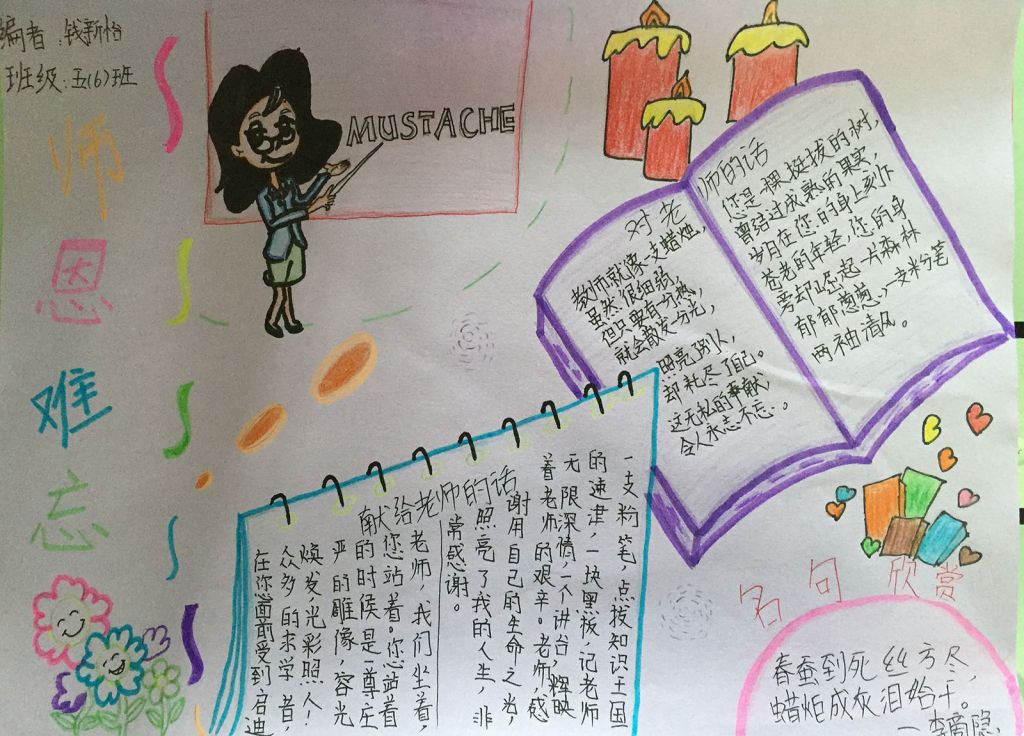 编者:钱新怡
班级:五(6)班
师恩难忘
MUSTACHE
对老师的话
教师就像一支蜡烛,
虽然很细弱,
但只要有一分热,
就会散发一分光,
照亮了别人,
却耗尽了自己。
这无私的奉献,
令人永志不忘。
您是一棵挺拔的树,
曾结过成熟的果实,
岁月在您的身上刻下
苍老的年轻,您的身
旁却崛起一片森林
郁郁葱葱,一支米分笔
两袖清风。
献给老师的话
一支粉笔,点拨知识王国
的速津,一块黑板,记老师
无限深情,一个讲台,辉映
着老师的艰辛。老师,感
谢用自己的生命之光,
照亮了我的人生,非
常感谢。
老师,我们坐着,
您站着。您站着
的时候是一尊庄
严的雕像,容光
焕发,光彩照人!
众多的求学者,
在您面前受到启迪
名句欣赏
春蚕到死丝方尽,
蜡炬成灰泪始干。
—李商隐